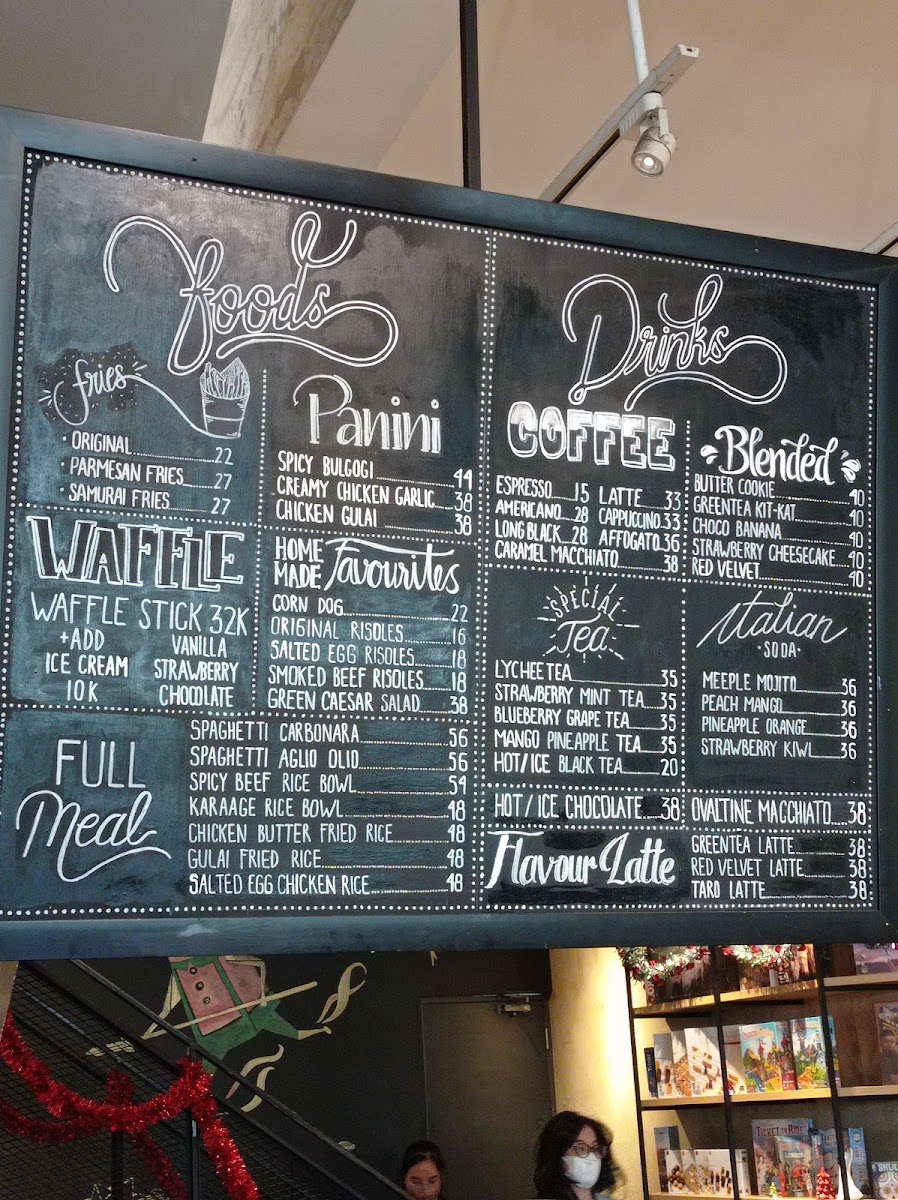 Foods
fries
· ORIGINAL 22
· PARMESAN FRIES 27
· SAMURAI FRIES 27
Panini
SPICY BULGOGI 44
CREAMY CHICKEN GARLIC 38
CHICKEN GULAI 38
WAFFLE
WAFFLE STICK 32K
+ADD
ICE CREAM
10K
VANILLA
STRAWBERRY
CHOCOLATE
HOME MADE Favourites
CORN DOG 22
ORIGINAL RISOLES 16
SALTED EGG RISOLES 18
SMOKED BEEF RISOLES 18
GREEN CAESAR SALAD 38
FULL
Meal
SPAGHETTI CARBONARA 56
SPAGHETTI AGLIO OLIO 56
SPICY BEEF RICE BOWL 54
KARAAGE RICE BOWL 48
CHICKEN BUTTER FRIED RICE 48
GULAI FRIED RICE 48
SALTED EGG CHICKEN RICE 48
Drinks
COFFEE
ESPRESSO 15 LATTE 33
AMERICANO 28 CAPPUCCINO 33
LONG BLACK 28 AFFOGATO 36
CARAMEL MACCHIATO 38
Blended
BUTTER COOKIE 40
GREENTEA KIT-KAT 40
CHOCO BANANA 40
STRAWBERRY CHEESECAKE 40
RED VELVET 40
SPECIAL
Tea
LYCHEE TEA 35
STRAWBERRY MINT TEA 35
BLUEBERRY GRAPE TEA 35
MANGO PINEAPPLE TEA 35
HOT/ICE BLACK TEA 20
Italian
· SODA ·
MEEPLE MOJITO 36
PEACH MANGO 36
PINEAPPLE ORANGE 36
STRAWBERRY KIWI 36
HOT / ICE CHOCOLATE 38
OVALTINE MACCHIATO 38
Flavour Latte
GREENTEA LATTE 38
RED VELVET LATTE 38
TARO LATTE 38
TICKET TO RIDE
LONDON
SKULL